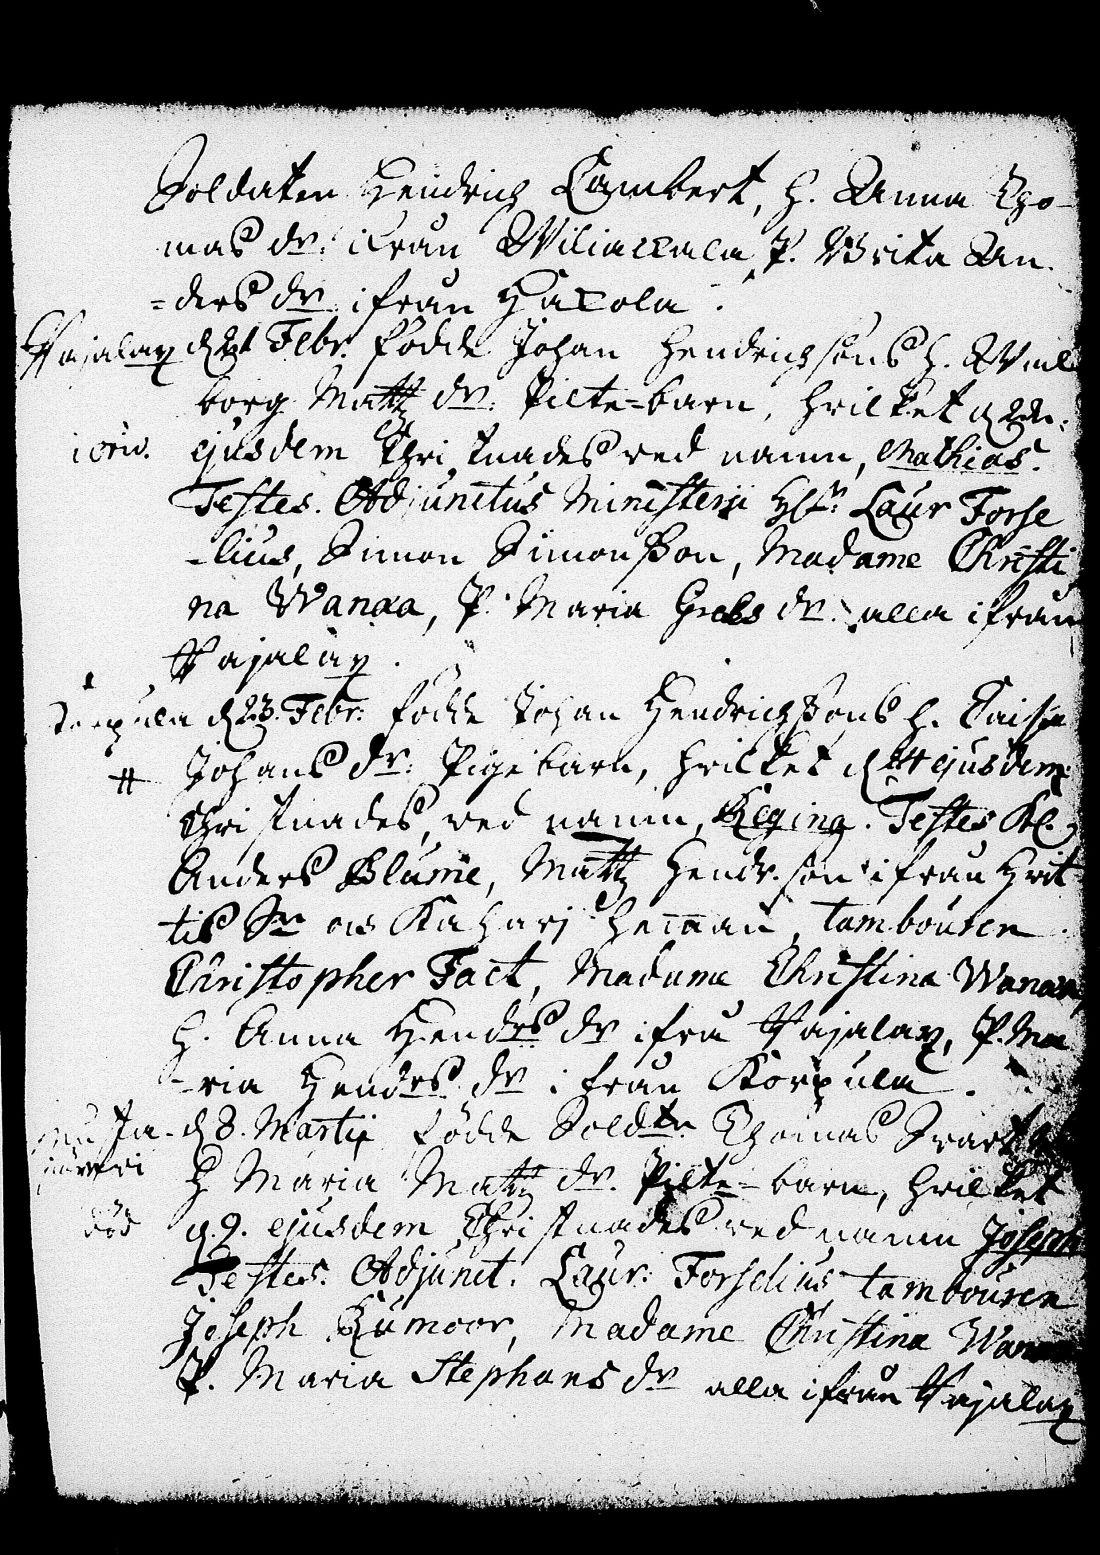 Soldaten Hendrich Lambert, h. Anna Tho-
mas dr. ifrån Wiliackala, P. Brita An-
=ders dr ifrån Hacola.
Pajalax d 21 Febr. födde Johan Hendrichsons h. Wal
borg Matts dr. Pilte=barn, hvilket d 22
ejusdem Christnades ved namn, Mathias.
Testes. Adjunctus Ministerij Hr. Laur Forse
-lius, Simon Simonsson, Madame Christi
na Wanaa, P. Maria Grels dr. alla ifrån
Pajalax.
d 23. Febr. födde Johan Hendrichsons h. Caisa
# Johans dr. Pigebarn, hvilket d 24 ejusdem
Christnades, ved namn, Regina. Testes Kl.
Anders Blume, Matts Hendr. son ifrån
Kaharj, tambouren
Christopher Fact, Madame Christina Wanaa,
h. Anna Hendrs dr ifrå Pajalax, P. Ma
-ria Hendrs dr ifrån Korpula.
d 8. Martij födde Soldtn Thomas Svart
h Maria Matts dr. Pilte=barn, hvilket
död d. 9. ejusdem Christnades ved namn Joseph
Testes. Adjunct. Laur. Forselius, tambouren
Joseph Rumoor, Madame Christina Wanaa
P. Maria Stephans dr alla ifrån Pajalax